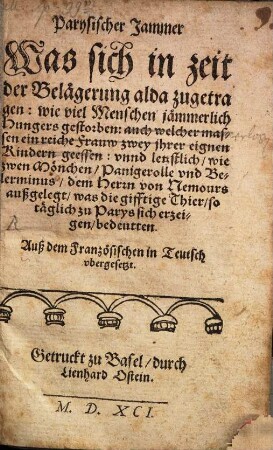 Parysischer Jammer
Was sich in zeit
der Belägerung alda zugetra
gen: wie viel Menschen jämmerlich
Hungers gestorben: auch welcher mas-
sen ein reiche Frauw zwey jhrer eignen
Kindern geessen: vnnd lenstlich/ wie
zwen Mönchen/ Panigerolle vnd Be-
lerminus/ dem Herrn von Nemours
außgelegt/ was die gifftige Thier/ so
täglich zu Parys sich erzei-
gen/ bedeutten.
Auß dem Französischen in Teutsch
vbergesetzt.
Getruckt zu Basel/ durch
Lienhard Ostein.
M. D. XCI.